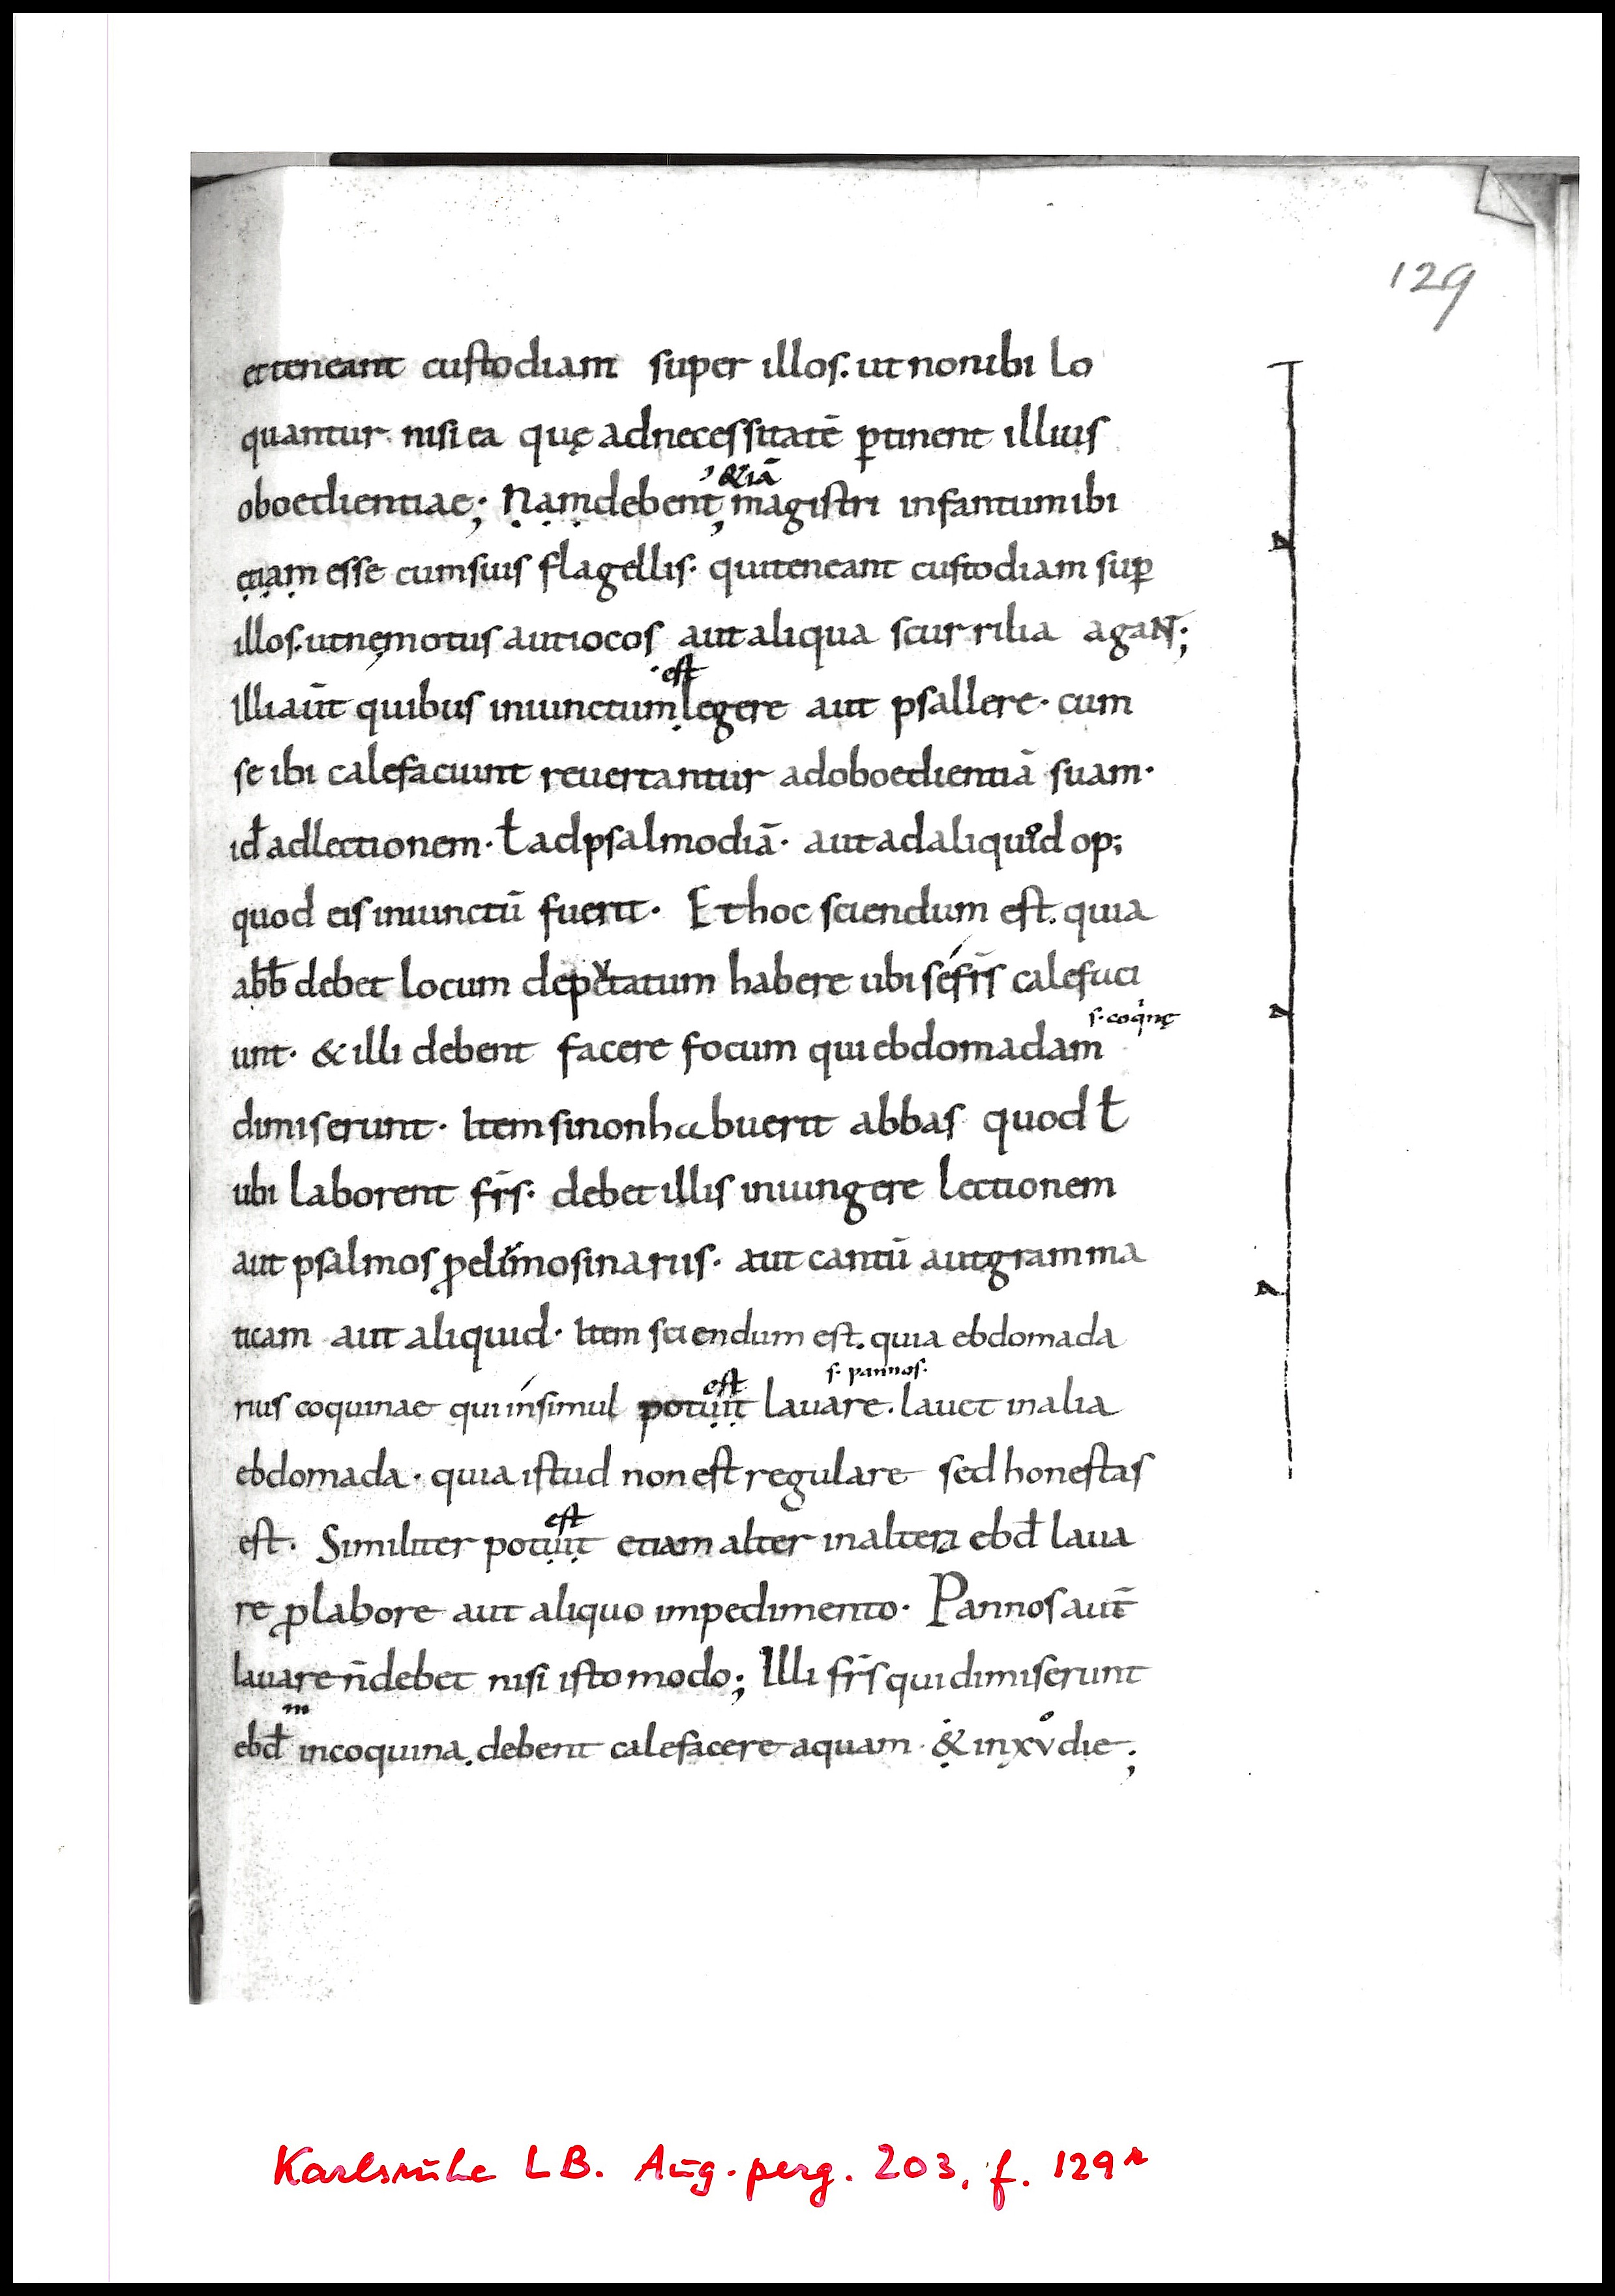 129
et teneant custodiam super illos. ut non ibi lo
quantur. nisi ea quę ad necessitatē ꝑtinent illius
&iā
oboedientiae; Nam debent, magistri infantum ibi
etiam esse cum suis flagellis. qui teneant custodiam suꝑ
illos. ut nęmotus aut iocos aut aliqua scurrilia agant;
est
illi aūt quibus iniunctum legere aut psallere. cum
se ibi calefaciunt reuertantur ad oboedientiā suam.
id̄ ad lectionem. ł ad psalmodiā. aut ad aliquid op;
quod eis iniunctū fuerit. Et hoc sciendum est. quia
abƀ debet locum deputatum habere ubi se fr̄s calefaci
s. coqinę
unt. & illi debent facere focum qui ebdomadam
dimiserunt. Item si non habuerit abbas quod ł
ubi laborent fr̄s. debet illis iniungere lectionem
aut psalmos ꝓ elimosinariis. aut cantū aut gramma
ticam aut aliquid. Item sciendum est. quia ebdomada
est s. pannos.
rius coquinae qui insimul potuit lauare. lauet in alia
ebdomada. quia istud non est regulare sed honestas
est
est. Similiter potuit etiam alter in altera ebd̄ laua
re ꝓ labore aut aliquo impedimento. Pannos aūt
lauare n̄ debet nisi isto modo; Illi fr̄s qui dimiserunt
m
ebd̄ in coquina. debent calefacere aquam. & in xv° die;
Karlsruhe LB. Aug. perg. 203, f. 129r